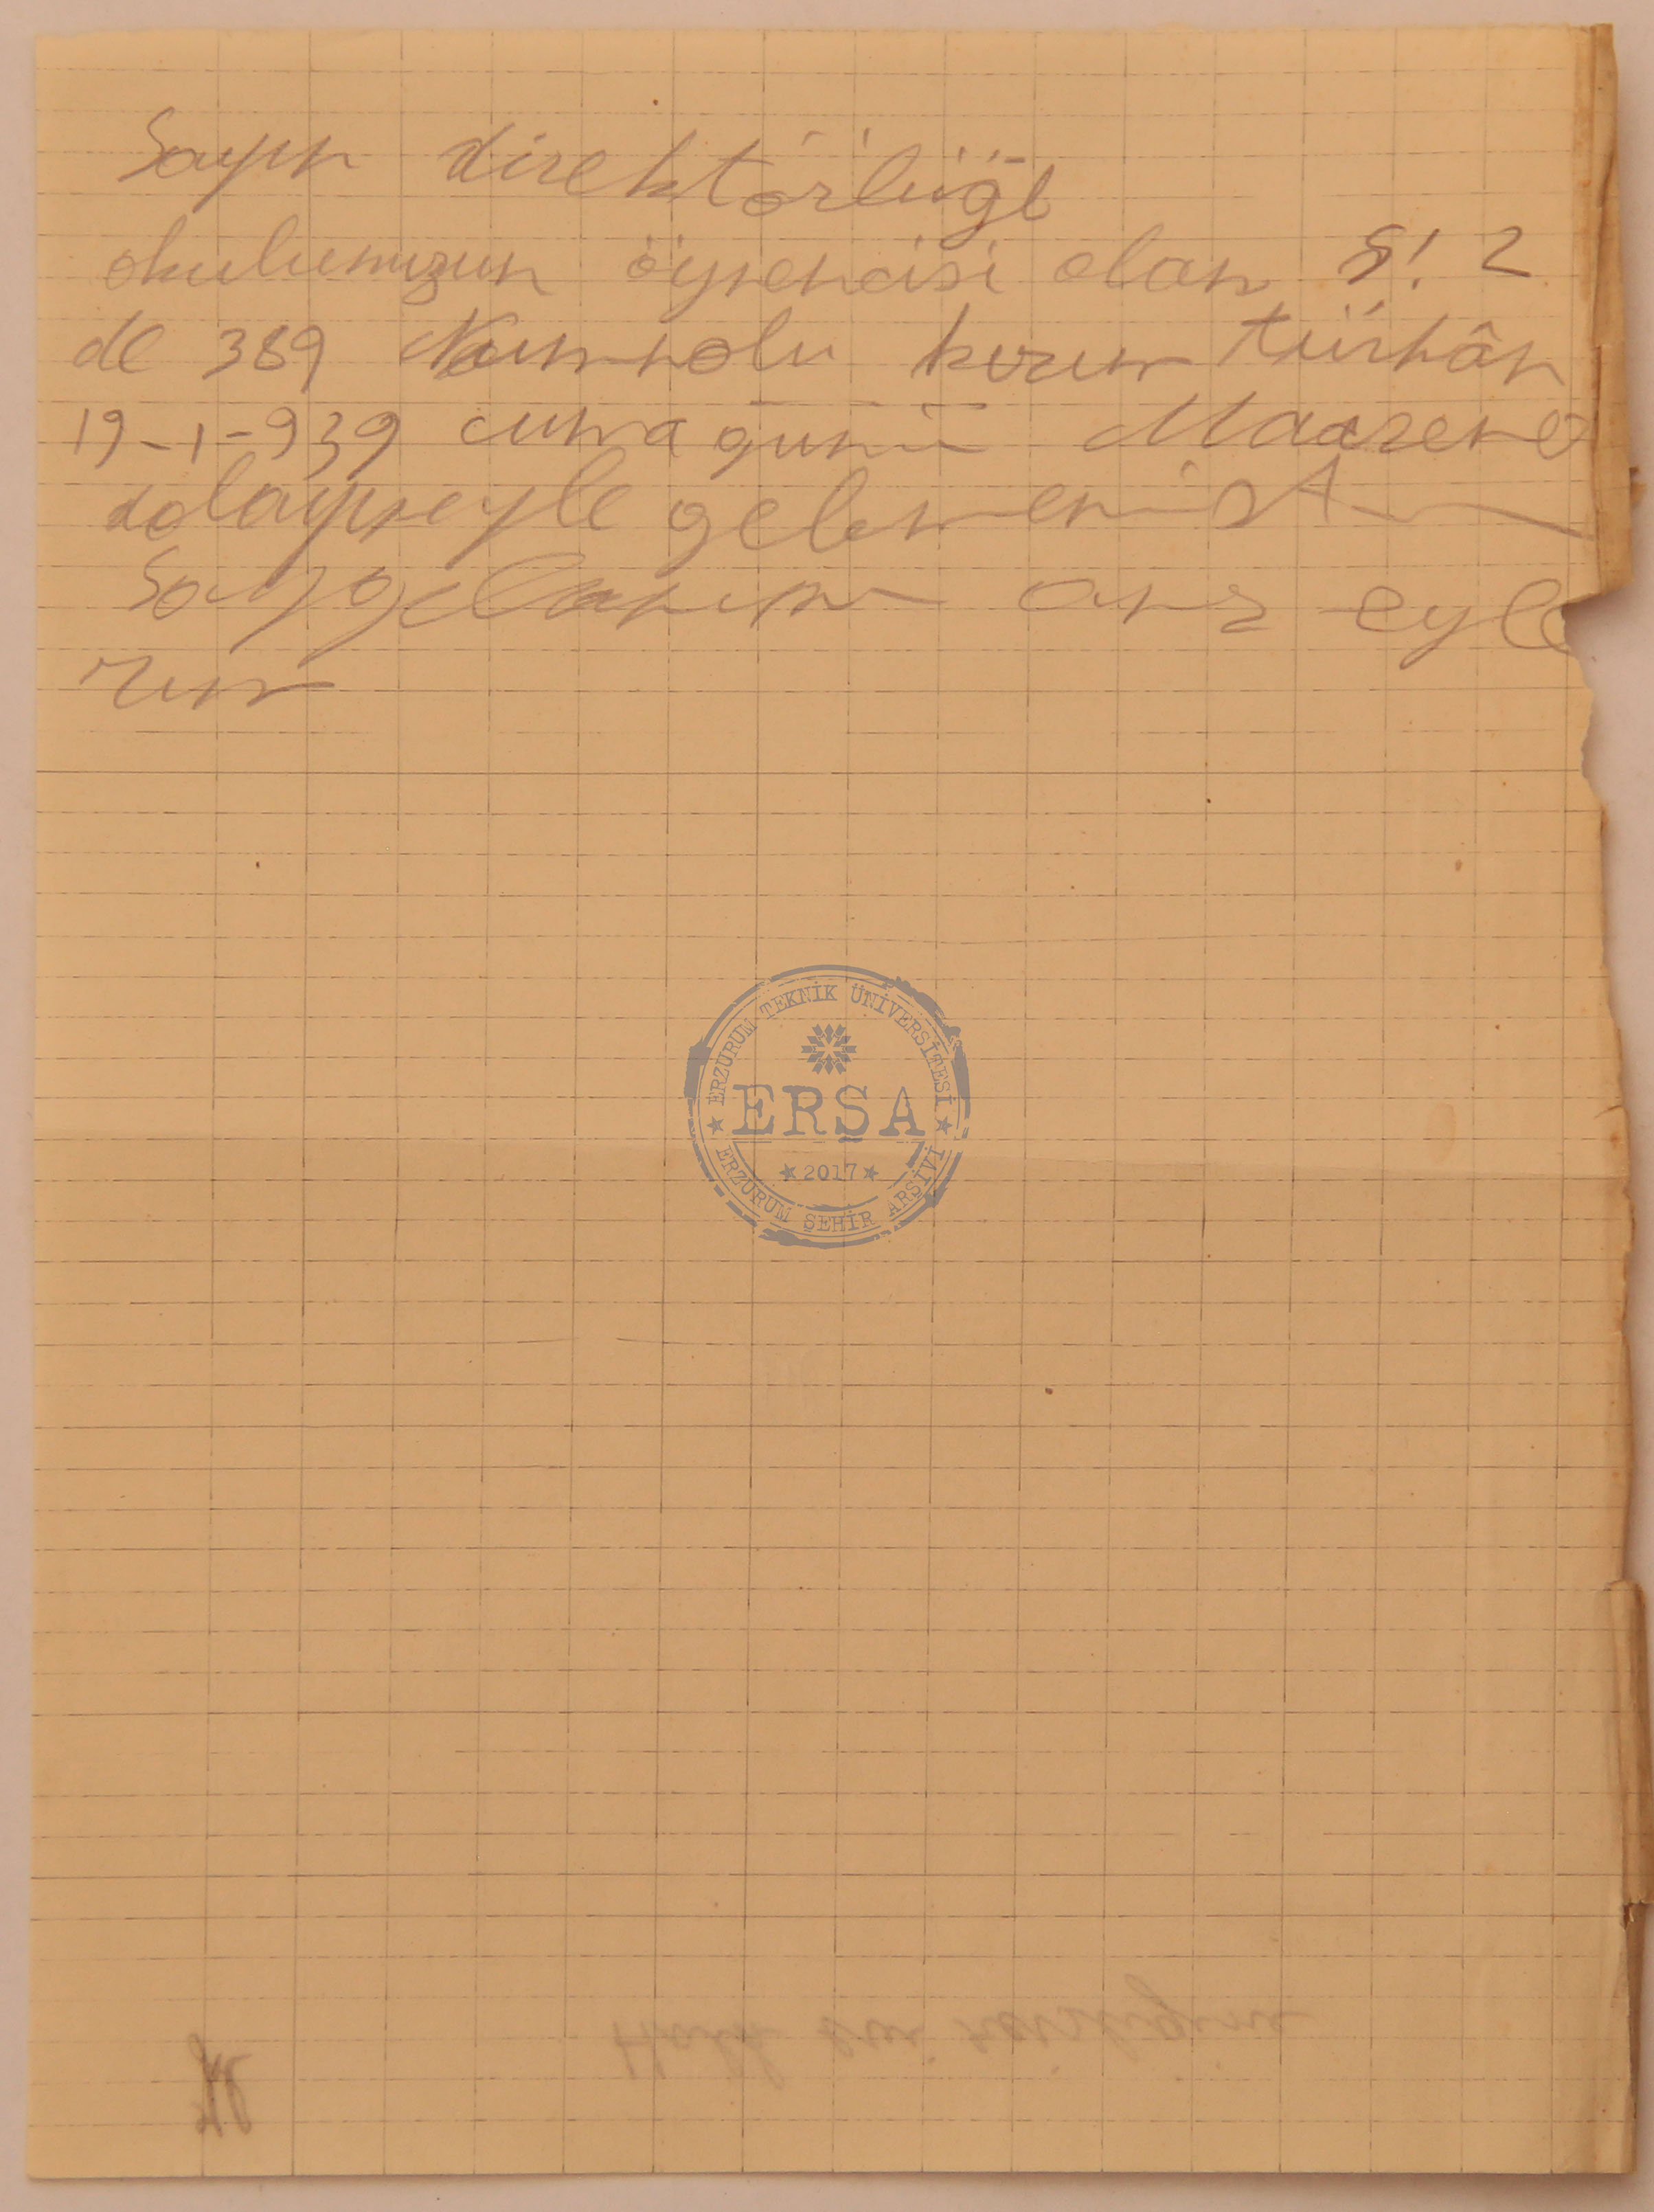 Sayın direktörlüğe
okulumuzun öyrencisi olan S! 2
de 389 Numrolu kızım türkân
19-1-939 cuma günü Maazere
dolayıseyle gelmemiştir
Saygılarımı arz eyle
rım
ERZURUM TEKNİK ÜNİVERSİTESİ
ERŞA
2017
ERZURUM ŞEHİR ARŞİVİ